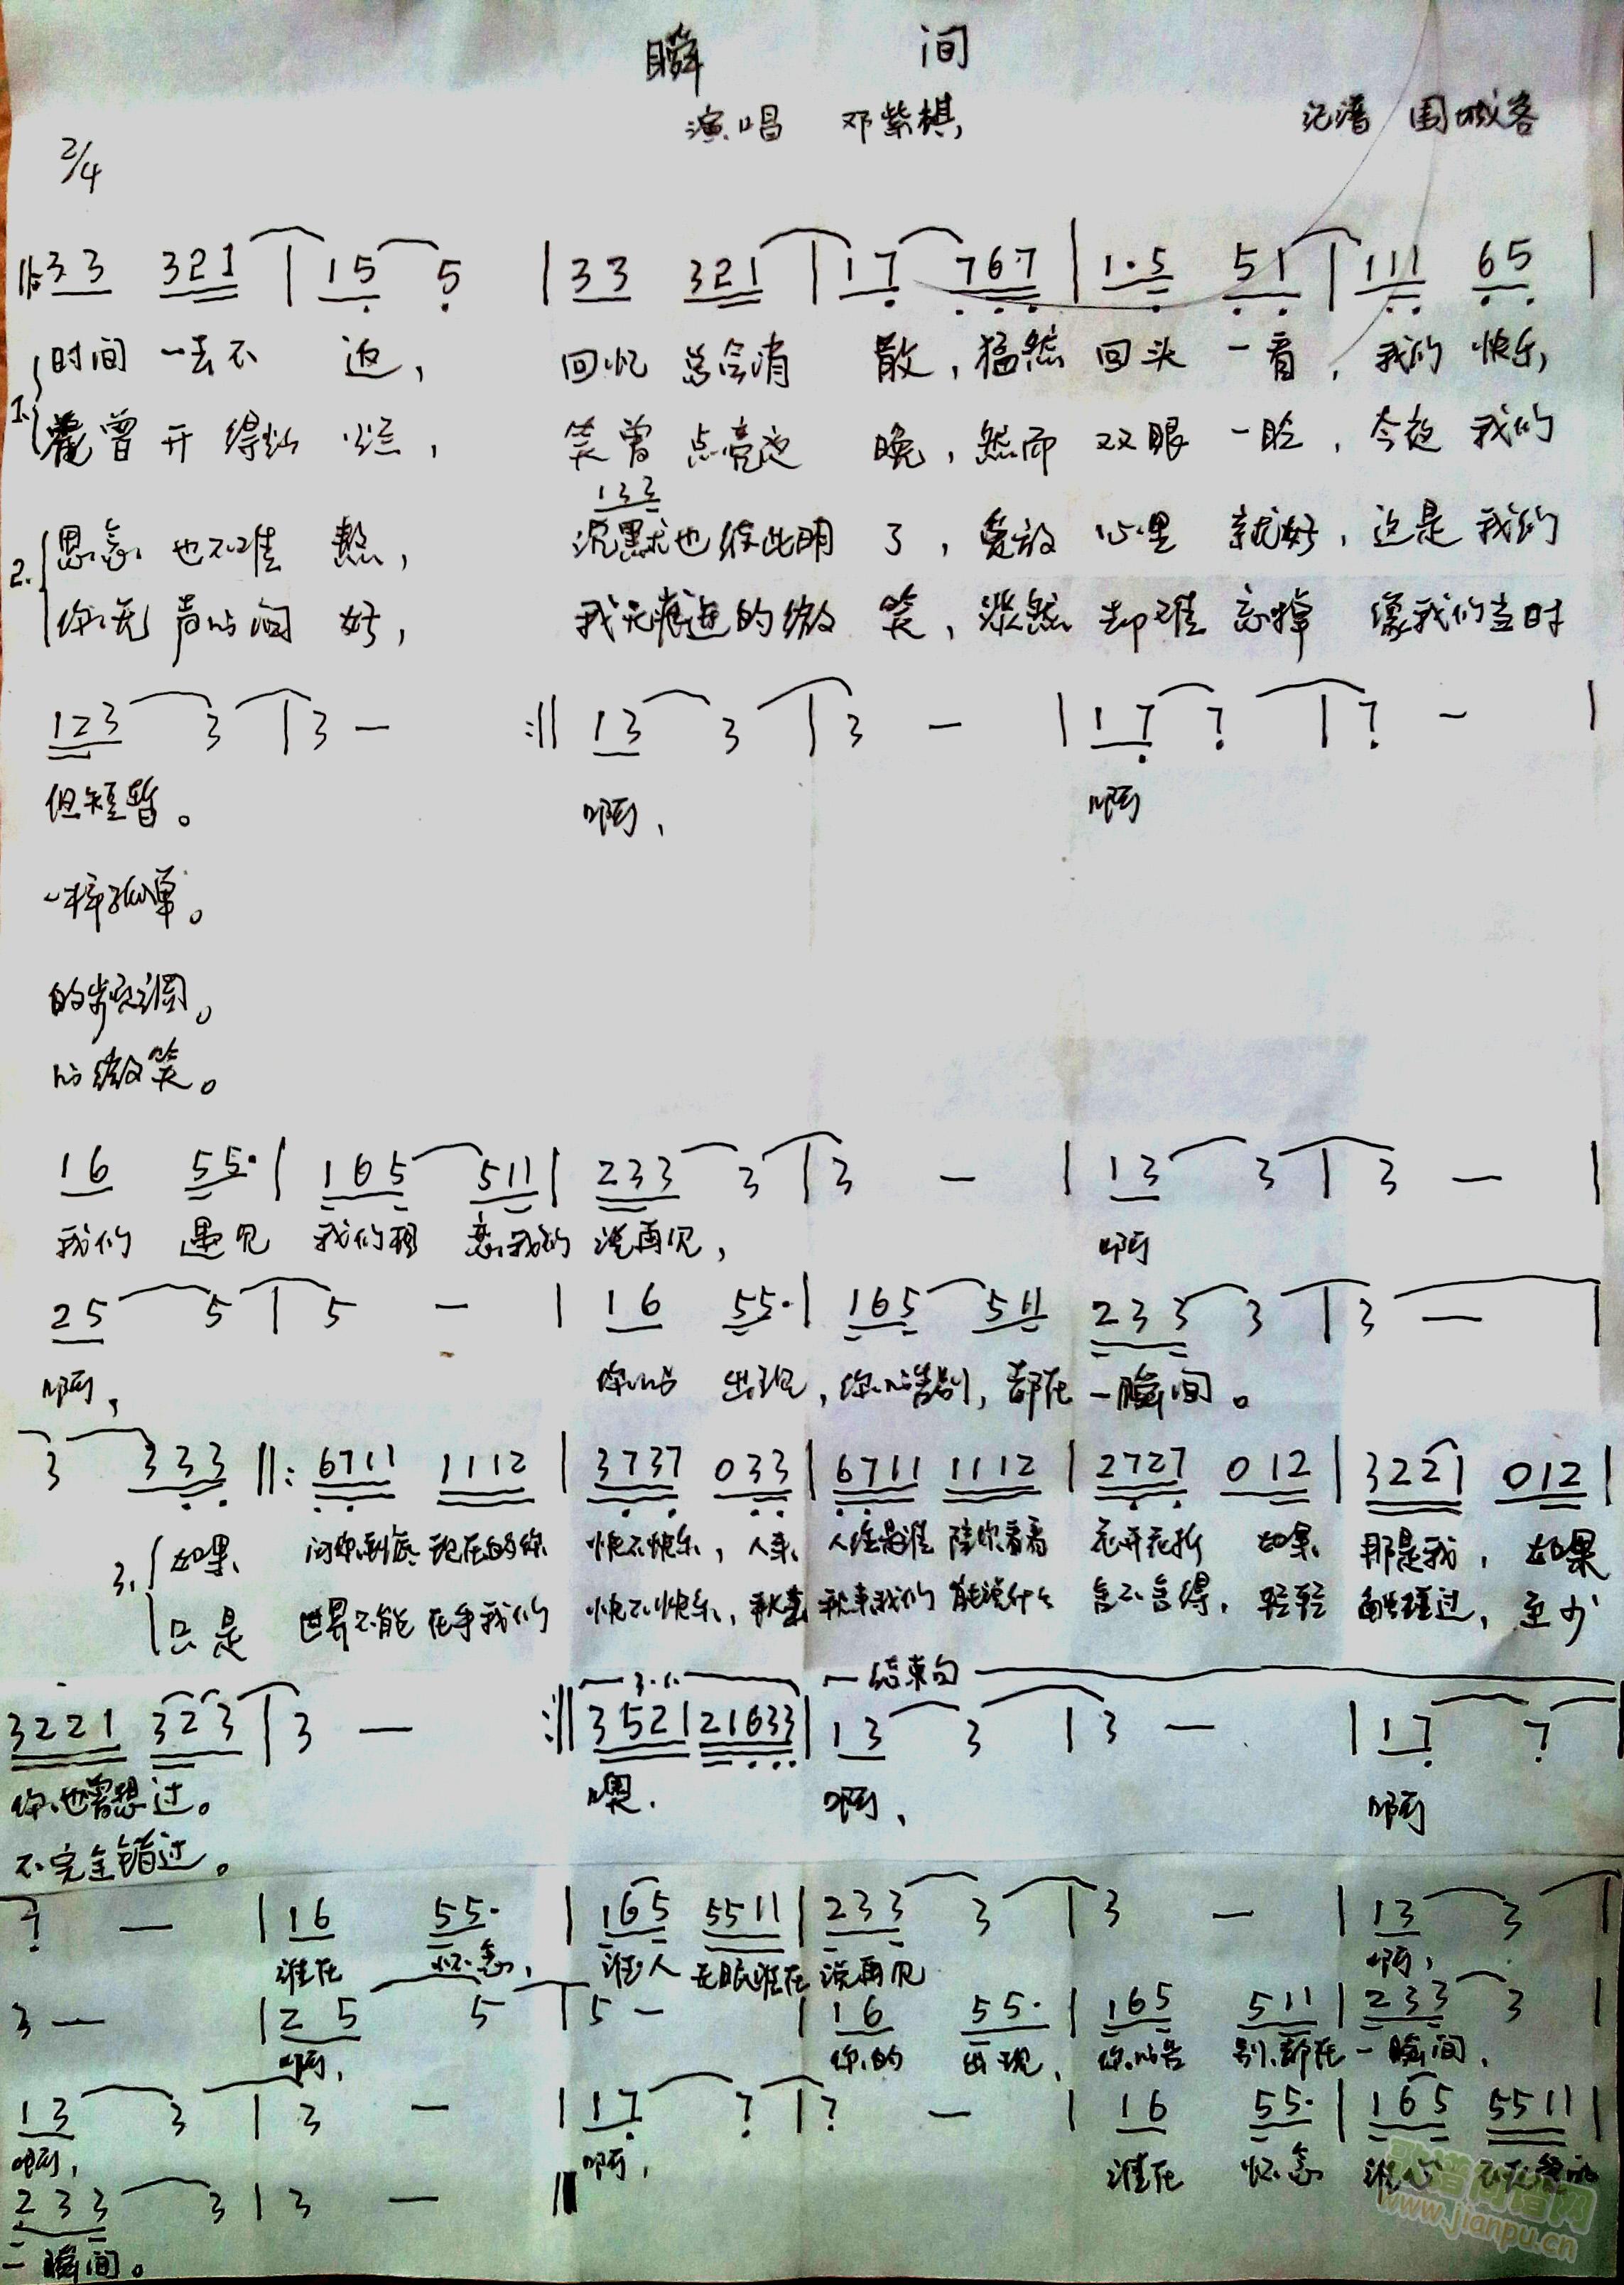 瞬 间
演唱 邓紫棋 记谱 围城客
2/4
||:33 321 | 15 5 | 33 321 | 17 767 | 1·5 51 | 111 65 |
1. 时间 一去不 返, 回忆 总会消 散,猛然 回头 一看,我的 快乐,
曾 开 得灿 烂, 笑曾 点亮夜 晚,然而 双眼 一眨,今夜 我的
133
2. 思念 也不难 熬, 沉默也彼此明 了,爱放 心里 就好,这是 我的
你无 声的问 好, 我无痕迹的微 笑,淡然 却难 忘掉 像我们当时
123 3 | 3 — :|| 13 3 | 3 — | 17 7 | 7 — |
但短暂。 啊, 啊
一样孤单。
的步调。
的微笑。
16 55· | 165 511 | 233 3 | 3 — | 13 3 | 3 — |
我们 遇见 我们相 恋,我们 说再见, 啊
25 5 | 5 — | 16 55· | 165 511 233 3 | 3 — |
啊, 你的 出现,你的告别,都在 一瞬间。
3 333 ||: 6711 1112 | 3737 033 | 6711 1112 | 2727 012 | 3221 012 |
3. 如果 问你到底 现在的你 快不快乐,人来 人往是谁 陪你看看 花开花折 如果 那是我,如果
只是 世界不能 在乎我们 快不快乐, 我们 能说什么 舍不舍得,轻轻 过,至少
3. 结束句
3221 323 | 3 — :|| 3521 21633 | 13 3 | 3 — | 17 7 |
你也曾想过。 噢. 啊、 啊
不完全错过。
7 — | 16 55· | 165 5511 | 233 3 | 3 — | 13 3 |
谁在 怀念, 谁人 无眠谁在 说再见 啊,
3 — | 25 5 | 5 — | 16 55· | 165 511 | 233 3 |
啊, 你的 出现,你的告 别,都在 一瞬间,
13 3 | 3 — | 17 7 | 7 — | 16 55· | 165 5511 |
啊, 啊, 谁在 怀念
233 3 | 3 — ||
一瞬间。
歌谱简谱网
www.jianpu.cn